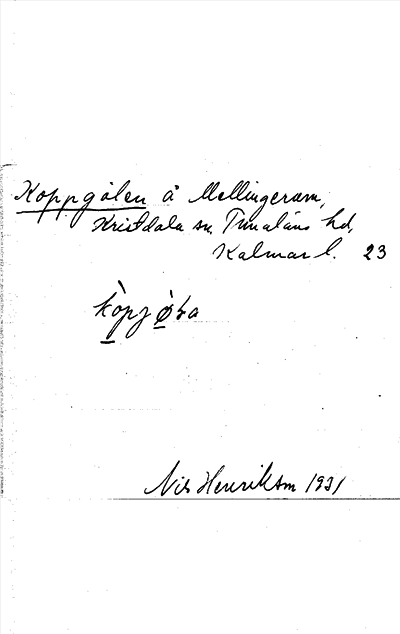 Koppgölen å Mellingeram,
Kristdala sn, Tunaläns hd,
Kalmar l. 23
Nils Henrikson 1931